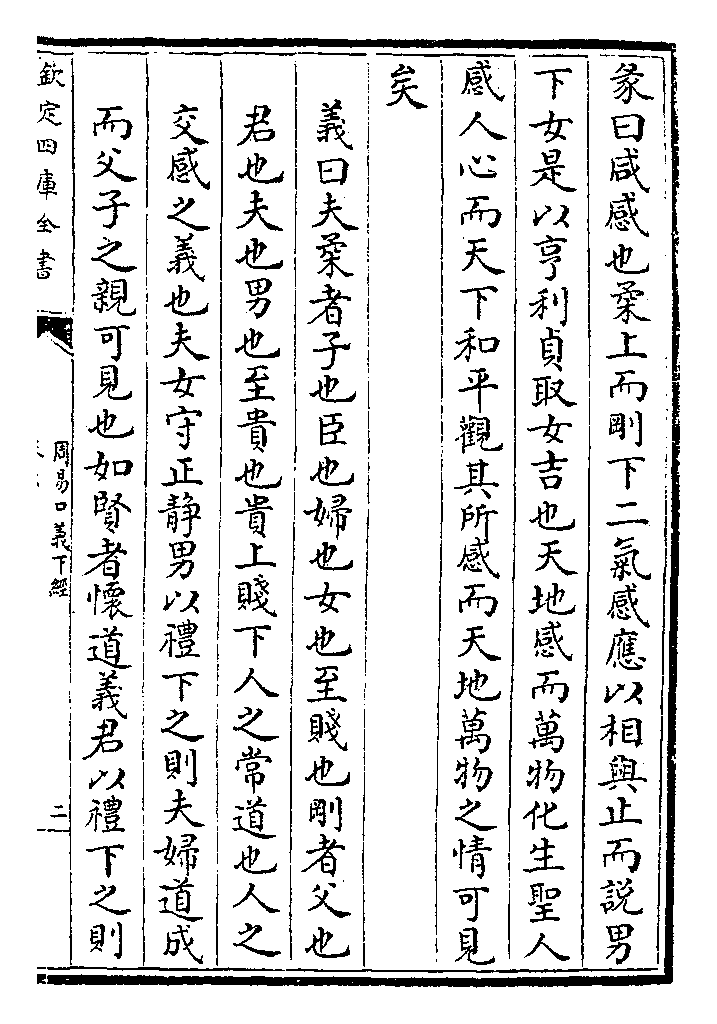 彖曰咸感也柔上而剛下二氣感應以相與止而說男
下女是以亨利貞取女吉也天地感而萬物化生聖人
感人心而天下和平觀其所感而天地萬物之情可見
矣
義曰夫柔者子也臣也婦也女也至賤也剛者父也
君也夫也男也至貴也貴上賤下人之常道也人之
交感之義也夫女守正静男以禮下之則夫婦道成
而父子之親可見也如賢者懷道義君以禮下之則
欽定四庫全書
周易口義下經
二